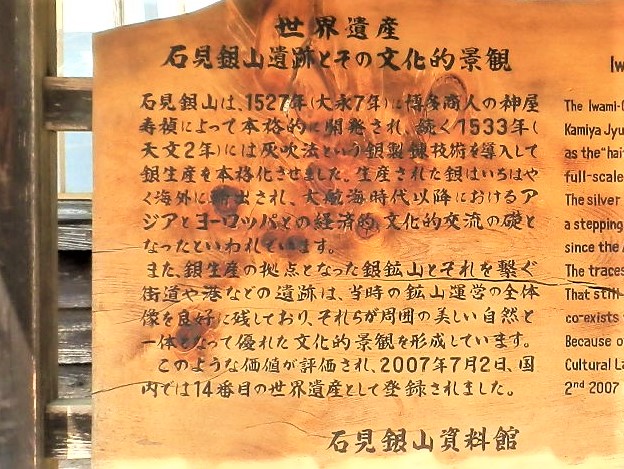 世界遺産
石見銀山遺跡とその文化的景観
石見銀山は、1527年(大永7年)に博多商人の神屋
寿禎によって本格的に開発され、続く1533年(
天文2年)には灰吹法という銀製錬技術を導入して
銀生産を本格化させました。生産された銀はいちはや
く海外に輸出され、大航海時代以降におけるア
ジアとヨーロッパとの経済的、文化的交流の礎と
なったといわれています。
また、銀生産の拠点となった銀鉱山とそれを繋ぐ
街道や港などの遺跡は、当時の鉱山運営の全体
像を良好に残しており、それらが周囲の美しい自然と
一体となって優れた文化的景観を形成しています。
このような価値が評価され、2007年7月2日、国
内では14番目の世界遺産として登録されました。
石見銀山資料館
Iw
The Iwami-G
Kamiya Jyu
as the "hai
full-scale
The silver
a stepping
since the A
The traces
That still
co-exists
Because o
Cultural La
2nd 2007